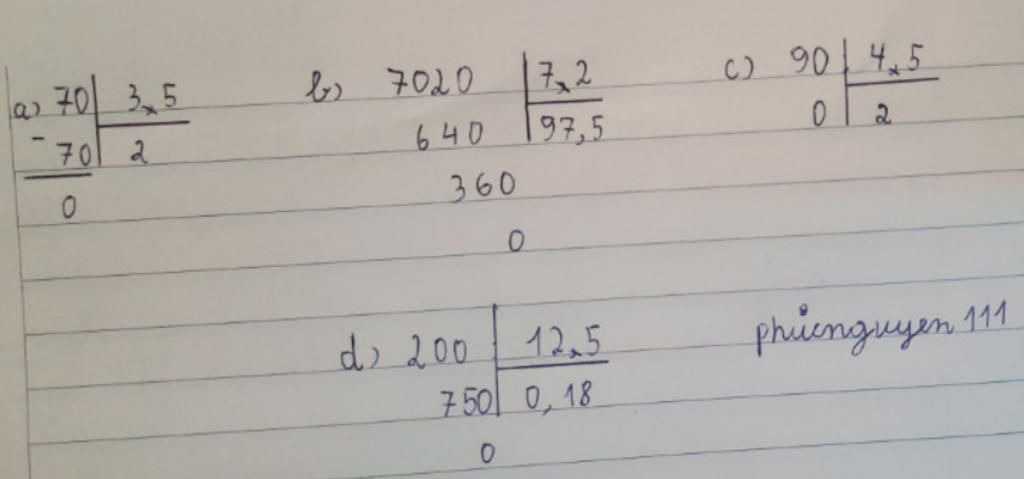 a) 70 3,5 b) 7020 7,2 c) 90 4,5
- 70 2 640 97,5 0 2
0 360
0
d) 200 12,5 phúcnguyen 111
750 0,18
0